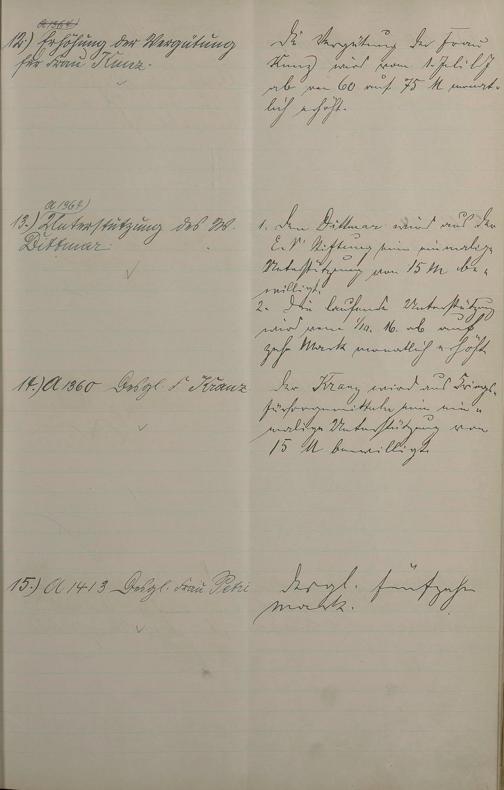 A 1364)
12.) Erhöhung der Vergütung
für Frau Kunz.
Die Vergütung der Frau
Kunz wird vom 1. Juli l. J.
ab von 60 auf 75 M monat-
lich erhöht.
A 1362)
13.) Unterstützung des W.
Dittmar.
1. Dem Dittmar wird aus der
Stiftung eine einmalige
Unterstützung von 15 M be-
willigt.
2. Die laufende Unterstützung
wird vom 1/10. 16. ab auf
zehn Mark monatlich erhöht.
14.) A 1360 Desgl. d Kranz
Der Kranz wird aus Kriegs-
fürsorgemitteln eine ein-
malige Unterstützung von
15 M bewilligt.
15.) A 1413 Desgl. Frau Petri
Desgl. fünfzehn
Mark.